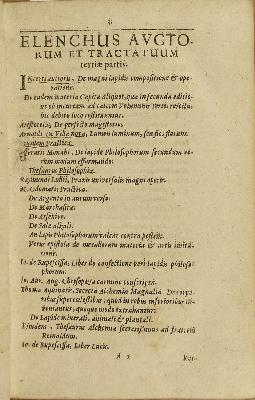 ELENCHUS AVCTO-
RUM ET TRACTATUUM
tertiæ partis.
INcerti autoris, De magni lapidis compositione & ope-
ratione.
De eadem materia Capita aliquot, quæ in secunda editio-
ne ob incuriam ad calcem Voluminis
hic debito loco restituuntur.
Aristoteles, De perfecto magisterio.
Arnaldi de Villa nova, Lumen luminum, seu flos florum.
Eiusdem Practica.
Efferarii Monachi, De lapide Philosophorum secundum ve-
rum modum efformando.
Thesaurus Philosophiæ.
Raymundi Lullii, Praxis universalis magni operis.
M. Odomari Practica.
De Argento in aurum verso.
De Marchasita.
De Arsenico.
De Sale alkali.
An lapis Philosophorum valeat contra pestem.
Vetus epistola de metallorum materia & artis imita-
tione.
Io. de Rupescissa, Liber de confectione veri lapidis philoso-
phorum.
Io. Aur. Augurelli Chrysopœia carmine conscripta.
Thomæ Aquinatis, Secreta Alchemiæ Magnalia. De corpo-
ribus supercœlestibus, quod in rebus inferioribus in-
veniantur, quoque modo extrahantur.
De Lapide minerali, animali & plantali.
Eiusdem, Thesaurus Alchemiæ secretissimus ad fratrem
Reinaldum.
Io. de Rupescissa, Liber Lucis.
A 2